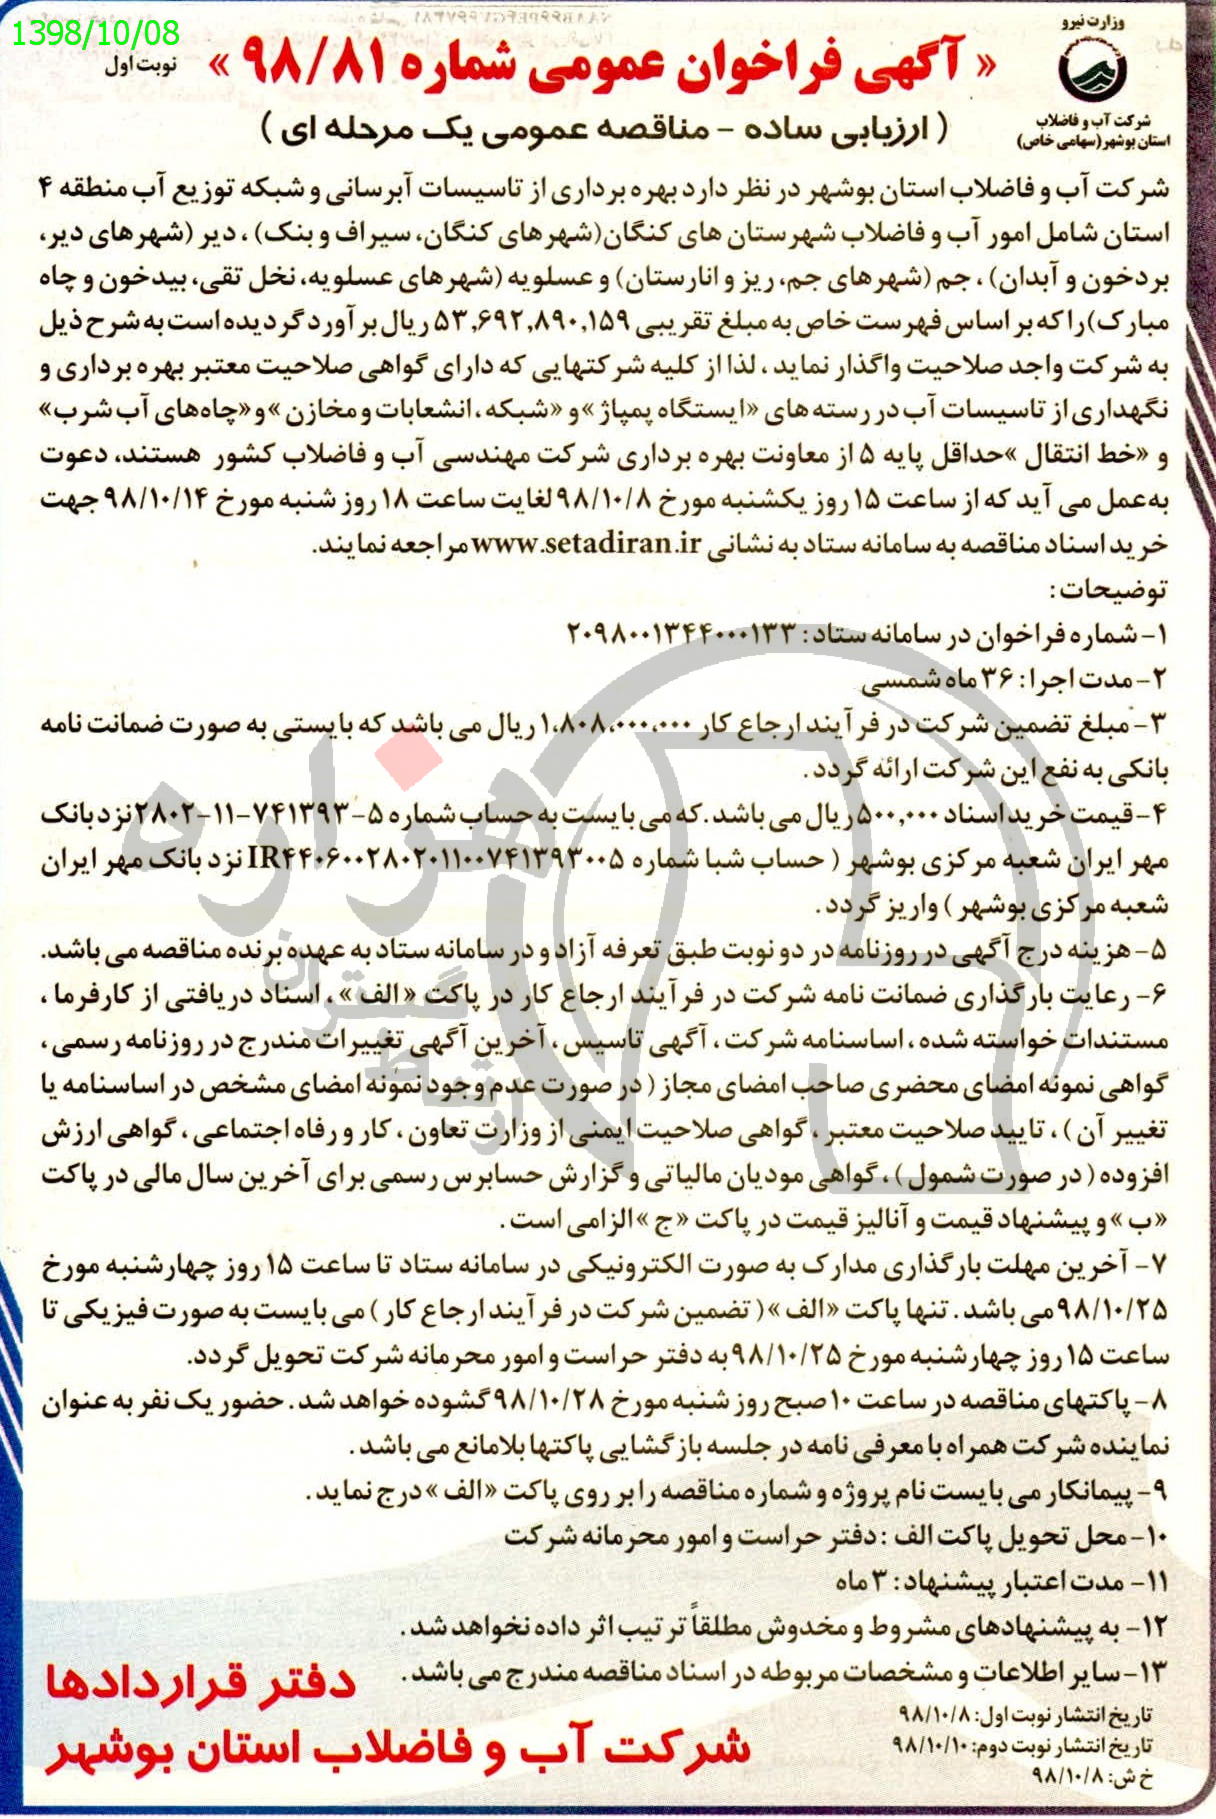 1398/10/08
وزارت نیرو
شرکت آب و فاضلاب
استان بوشهر(سهامی خاص)
« آگهی فراخوان عمومی شماره ۹۸/۸۱ »
نوبت اول
( ارزیابی ساده - مناقصه عمومی یک مرحله ای )
شرکت آب و فاضلاب استان بوشهر در نظر دارد بهره برداری از تاسیسات آبرسانی و شبکه توزیع آب منطقه ۴
استان شامل امور آب و فاضلاب شهرستان های کنگان(شهرهای کنگان، سیراف و بنک) ، دیر (شهرهای دیر،
بردخون و آبدان) ، جم (شهرهای جم، ریز و انارستان) و عسلویه (شهرهای عسلویه، نخل تقی، بیدخون و چاه
مبارک)را که بر اساس فهرست خاص به مبلغ تقریبی ۵۳,۶۹۲,۸۹۰,۱۵۹ ریال برآورد گردیده است به شرح ذیل
به شرکت واجد صلاحیت واگذار نماید ، لذا از کلیه شرکتهایی که دارای گواهی صلاحیت معتبر بهره برداری و
نگهداری از تاسیسات آب در رسته های «ایستگاه پمپاژ »و «شبکه ،انشعابات و مخازن »و«چاه‌های آب شرب»
و «خط انتقال »حداقل پایه ۵ از معاونت بهره برداری شرکت مهندسی آب و فاضلاب کشور هستند، دعوت
به‌عمل می آید که از ساعت ۱۵ روز یکشنبه مورخ ۹۸/۱۰/۸ لغایت ساعت ۱۸ روز شنبه مورخ ۹۸/۱۰/۱۴ جهت
خرید اسناد مناقصه به سامانه ستاد به نشانی www.setadiran.ir مراجعه نمایند.
توضیحات:
۱- شماره فراخوان در سامانه ستاد: ۲۰۹۸۰۰۱۳۴۴۰۰۰۱۳۳
۲- مدت اجرا: ۳۶ ماه شمسی
۳- مبلغ تضمین شرکت در فرآیند ارجاع کار ۱,۸۰۸,۰۰۰,۰۰۰ ریال می باشد که بایستی به صورت ضمانت نامه
بانکی به نفع این شرکت ارائه گردد.
۴- قیمت خرید اسناد ۵۰۰,۰۰۰ ریال می باشد. که می بایست به حساب شماره ۵-۷۴۱۳۹۳-۱۱-۲۸۰۲ نزد بانک
مهر ایران شعبه مرکزی بوشهر ( حساب شبا شماره IR۴۴۰۶۰۰۲۸۰۲۰۱۱۰۰۷۴۱۳۹۳۰۰۵ نزد بانک مهر ایران
شعبه مرکزی بوشهر ) واریز گردد.
۵- هزینه درج آگهی در روزنامه در دو نوبت طبق تعرفه آزاد و در سامانه ستاد به عهده برنده مناقصه می باشد.
۶- رعایت بارگذاری ضمانت نامه شرکت در فرآیند ارجاع کار در پاکت « الف » ، اسناد دریافتی از کارفرما ،
مستندات خواسته شده ، اساسنامه شرکت ، آگهی تاسیس ، آخرین آگهی تغییرات مندرج در روزنامه رسمی ،
گواهی نمونه امضای محضری صاحب امضای مجاز ( در صورت عدم وجود نمونه امضای مشخص در اساسنامه یا
تغییر آن ) ، تایید صلاحیت معتبر ، گواهی صلاحیت ایمنی از وزارت تعاون ، کار و رفاه اجتماعی ، گواهی ارزش
افزوده ( در صورت شمول ) ، گواهی مودیان مالیاتی و گزارش حسابرس رسمی برای آخرین سال مالی در پاکت
«ب »و پیشنهاد قیمت و آنالیز قیمت در پاکت «ج »الزامی است .
۷- آخرین مهلت بارگذاری مدارک به صورت الکترونیکی در سامانه ستاد تا ساعت ۱۵ روز چهارشنبه مورخ
۹۸/۱۰/۲۵ می باشد. تنها پاکت «الف »( تضمین شرکت در فرآیند ارجاع کار ) می بایست به صورت فیزیکی تا
ساعت ۱۵ روز چهارشنبه مورخ ۹۸/۱۰/۲۵ به دفتر حراست و امور محرمانه شرکت تحویل گردد.
۸- پاکتهای مناقصه در ساعت ۱۰ صبح روز شنبه مورخ ۹۸/۱۰/۲۸ گشوده خواهد شد. حضور یک نفر به عنوان
نماینده شرکت همراه با معرفی نامه در جلسه بازگشایی پاکتها بلامانع می باشد.
۹- پیمانکار می بایست نام پروژه و شماره مناقصه را بر روی پاکت «الف »درج نماید.
۱۰- محل تحویل پاکت الف : دفتر حراست و امور محرمانه شرکت
۱۱- مدت اعتبار پیشنهاد: ۳ ماه
۱۲- به پیشنهادهای مشروط و مخدوش مطلقاً ترتیب اثر داده نخواهد شد.
۱۳- سایر اطلاعات و مشخصات مربوطه در اسناد مناقصه مندرج می باشد.
تاریخ انتشار نوبت اول: ۹۸/۱۰/۸
تاریخ انتشار نوبت دوم: ۹۸/۱۰/۱۰
خ ش: ۹۸/۱۰/۸
دفتر قراردادها
شرکت آب و فاضلاب استان بوشهر
هزاره
گستران
ارتباط